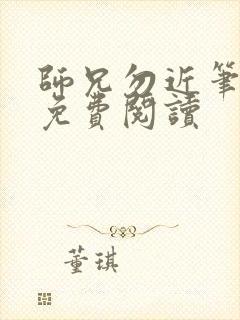 師兄勿近筆
免費閱讀
董琪